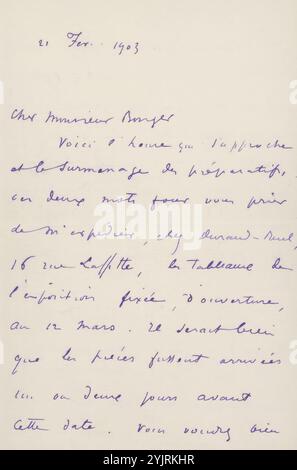 21 Fev. 1903
Cher Monsieur Bonger
Voici l'heure qui s'approche
et le surmenage des préparatifs,
ces deux mots pour vous prier
de m'expédier, chez Durand-Ruel,
16 rue Laffitte, les Tableaux de
l'exposition fixée, d'ouverture,
au 12 mars. Il serait bien
que les pièces fussent arrivées
un ou deux jours avant
cette date. Vous voudrez bien
alamy
Image ID: 2YJRKHR
www.alamy.com